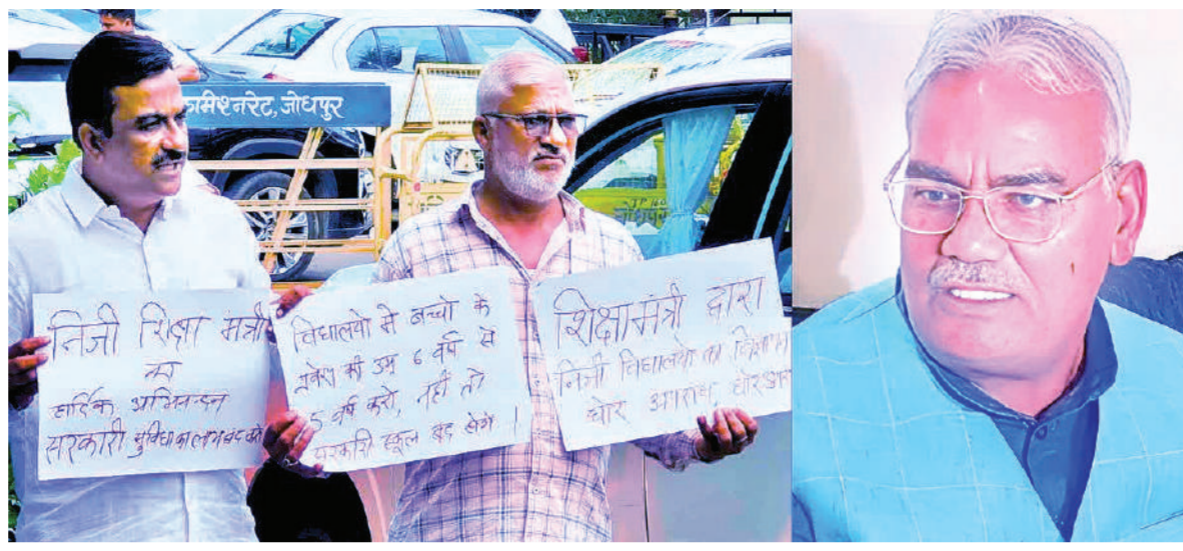 कमिश्नरेट, जोधपुर
जोधपुर
निजी शिक्षा मंत्री
का
हार्दिक अभिनन्दन
सरकारी सुविधा का लाभ बंद करो
विद्यालयो मे बच्चो के
प्रवेश की उम्र 6 वर्ष से
5 वर्ष करो, नहीं तो
सरकारी स्कूल बंद होगे !
शिक्षामंत्री द्वारा
निजी विद्यालयो का
घोर अपराध, घोर